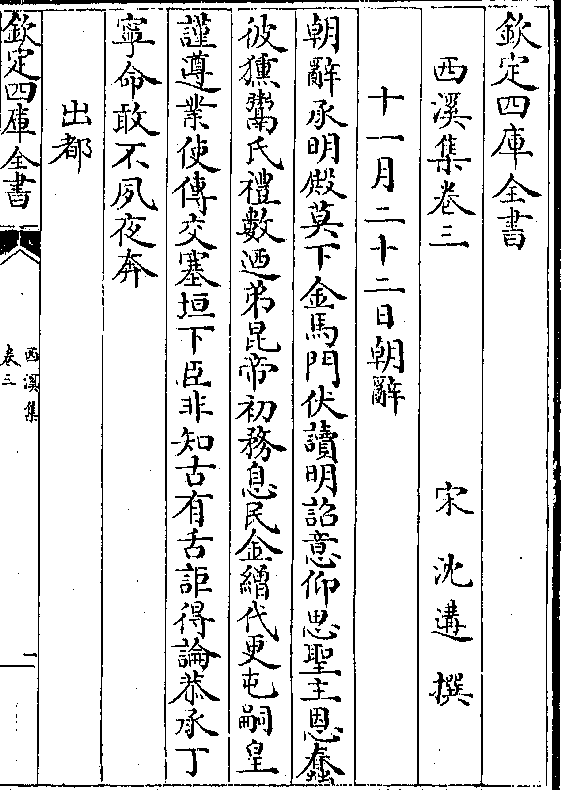 欽定四庫全書
西溪集卷三
宋 沈遘 撰
十一月二十二日朝辭
朝辭承明殿莫下金馬門伏讀明詔意仰思聖主恩蠢
彼獯鬻氏禮數迺弟昆帝初務息民金繒代更屯嗣皇
謹遵業使傳交塞垣下臣非知古有舌詎得論恭承丁
寧命敢不夙夜奔
出都
欽定四庫全書
西溪集
卷三
一